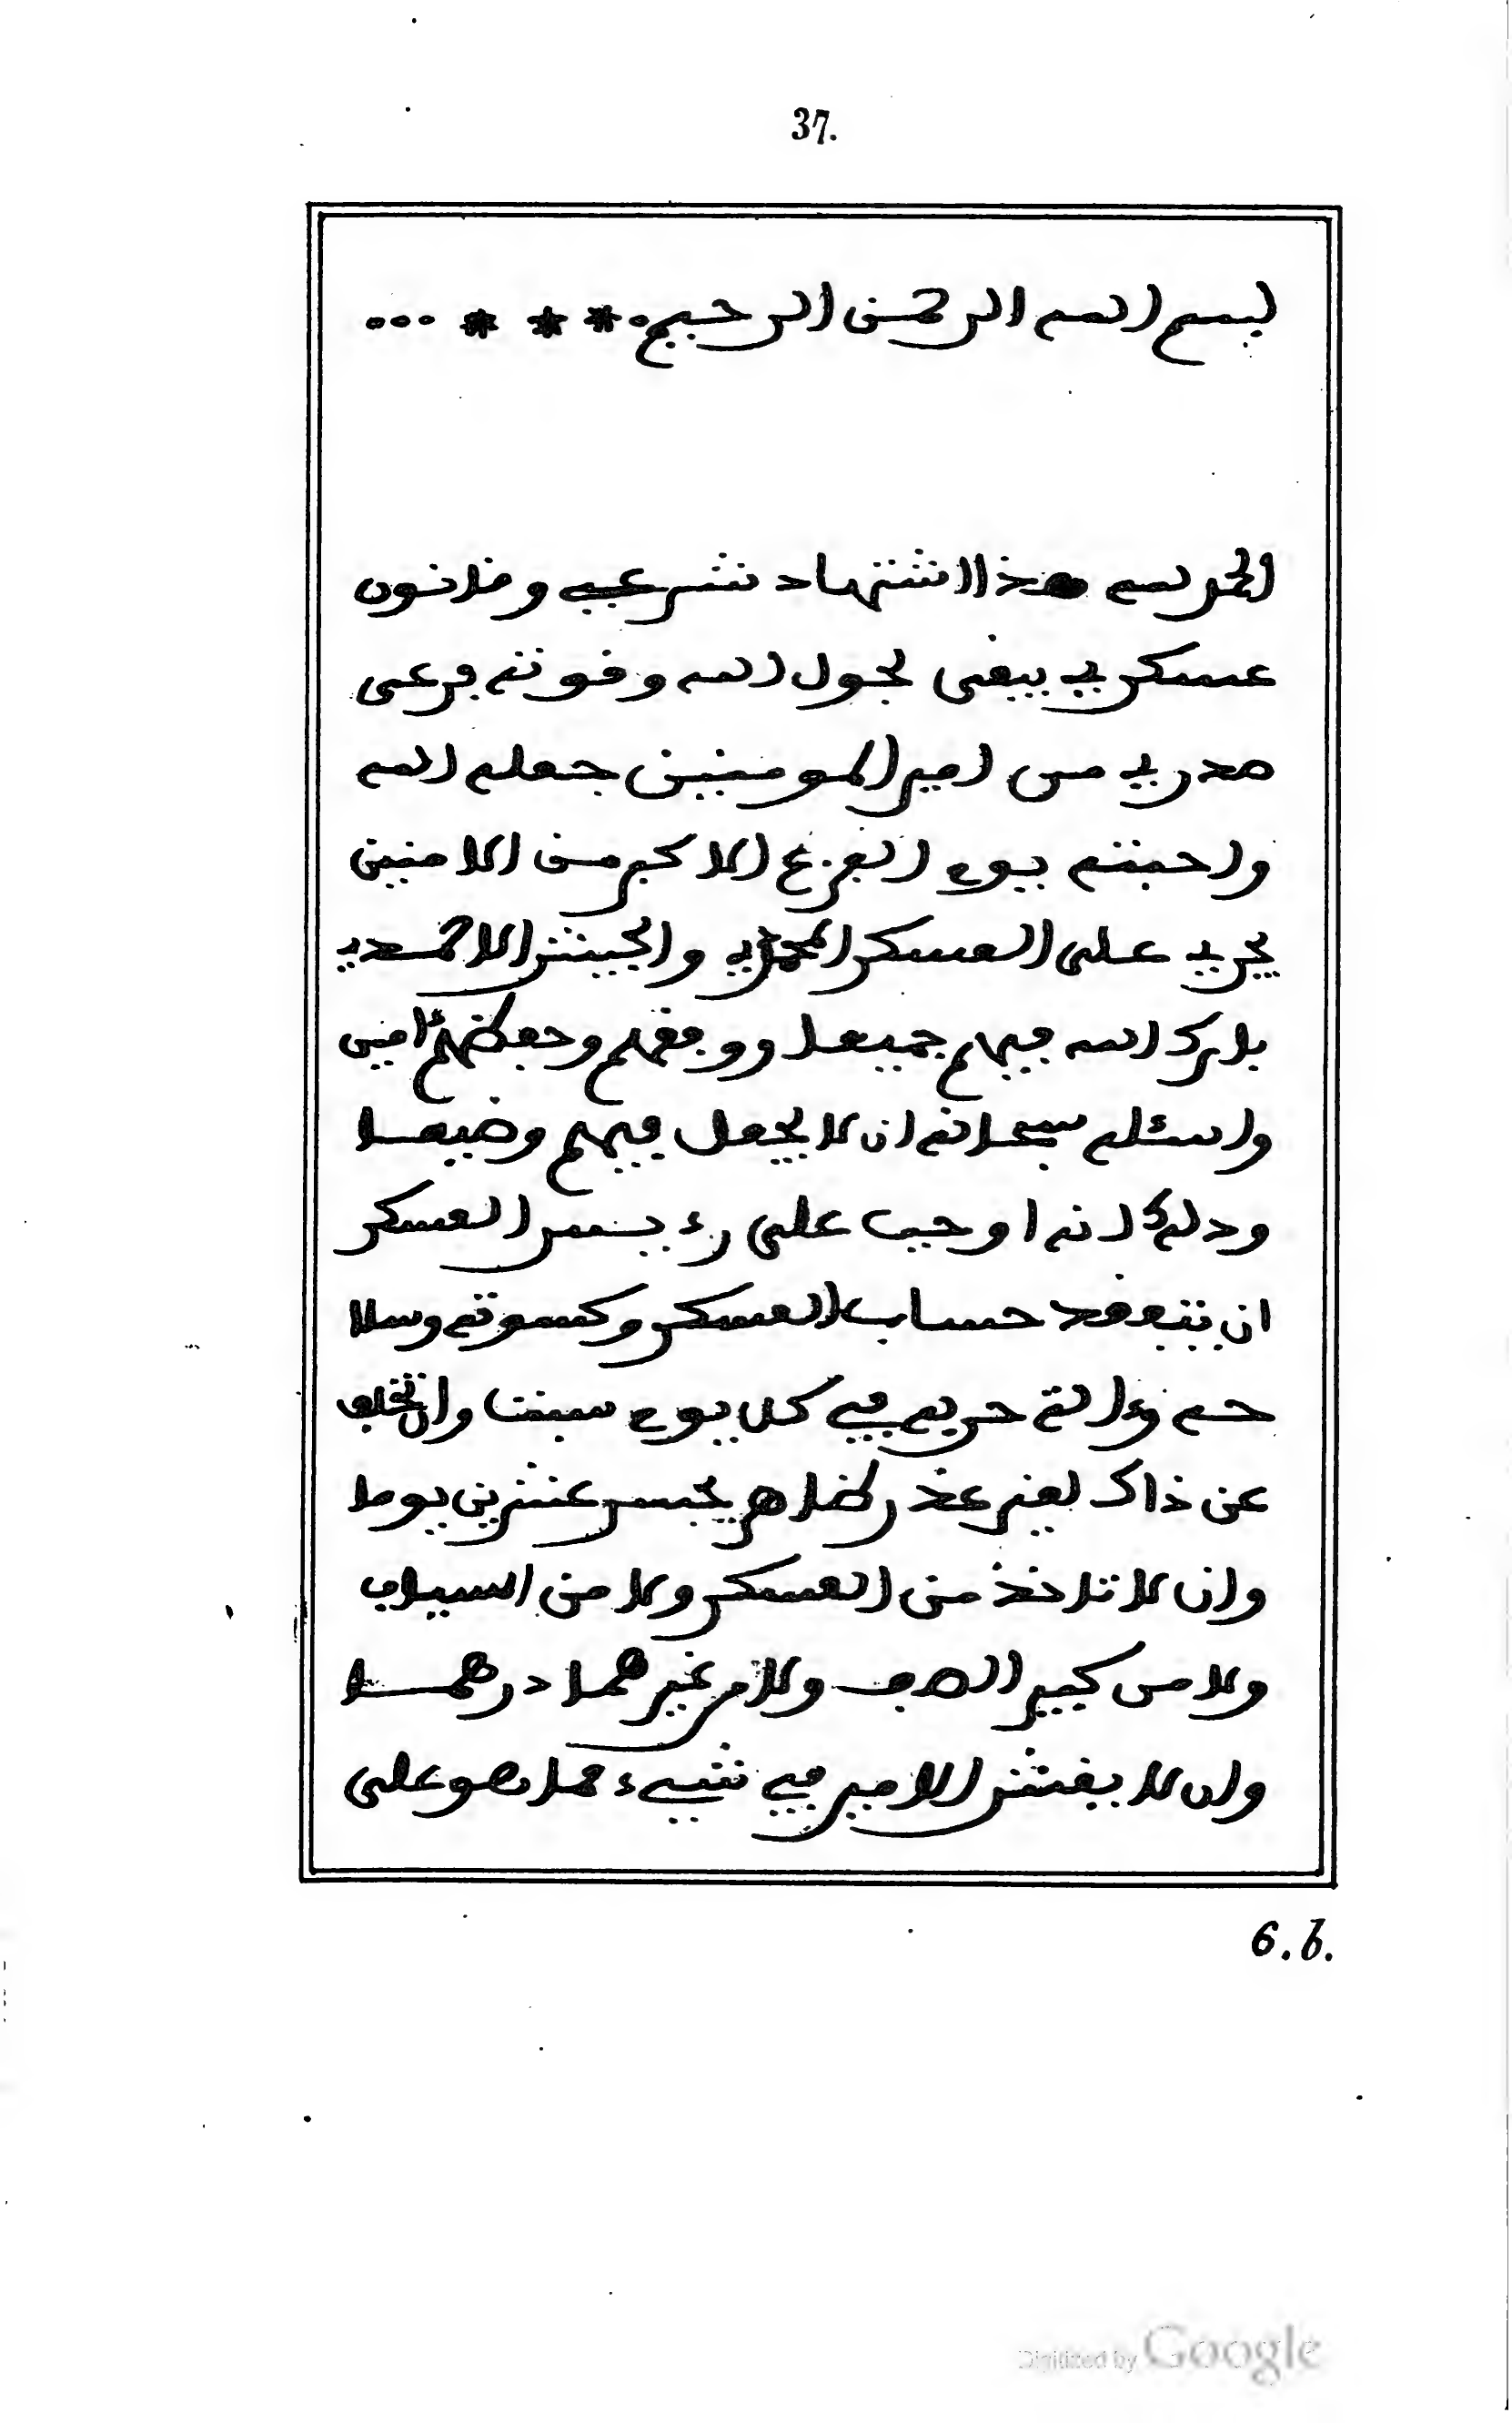 37.
بسم الله الرحمن الرحيم * * * ...
الحمد لله هذا اشتهاد شرعي وقانون
عسكري يبقى بحول الله وقوته فرعى
صدر به من امير المومنين جعله الله
واحبته يوم الفزع الاكبر من الامنين
يجري على العسكر المحمدي والجيش الاحمدي
بارك الله فيهم جميعا ووفقهم وحفظهم ءامين
واسئله سبحانه ان لا يجعل فيهم وضيعا
وذلك انه اوجب على رءيس العسكر
ان يتفقد حساب العسكر وكسوته وسلا
حه وءالة حربه في كل يوم سبت وان تخلف
عن ذاك لغير عذر ظاهر يحبس عشرين يوما
وان لا تاخذ من العسكر ولا من السياف
ولا من كبير الصف ولا من غيرهما درهما
وان لا يغش الامير في شيء مما هو على
6.b.
Digitized by Google